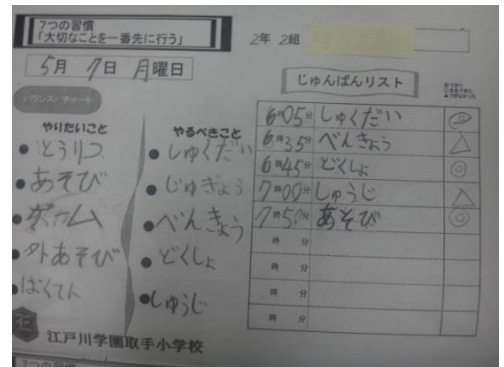 7つの習慣
「大切なことを一番先に行う」
2年 2組
5月 7日 月曜日
バランス・チャート
やりたいこと
・とうりつ
・あそび
・ゲーム
・外あそび
・ばくてん
やるべきこと
・しゅくだい
・じゅぎょう
・べんきょう
・どくしょ
・しゅうじ
じゅんばんリスト
6時05分 しゅくだい ◎
6時35分 べんきょう △
6時45分 どくしょ ◎
7時00分 しゅうじ △
7時50分 あそび ◎
時 分
時 分
時 分
時 分
江戸川学園取手小学校
7つの習慣